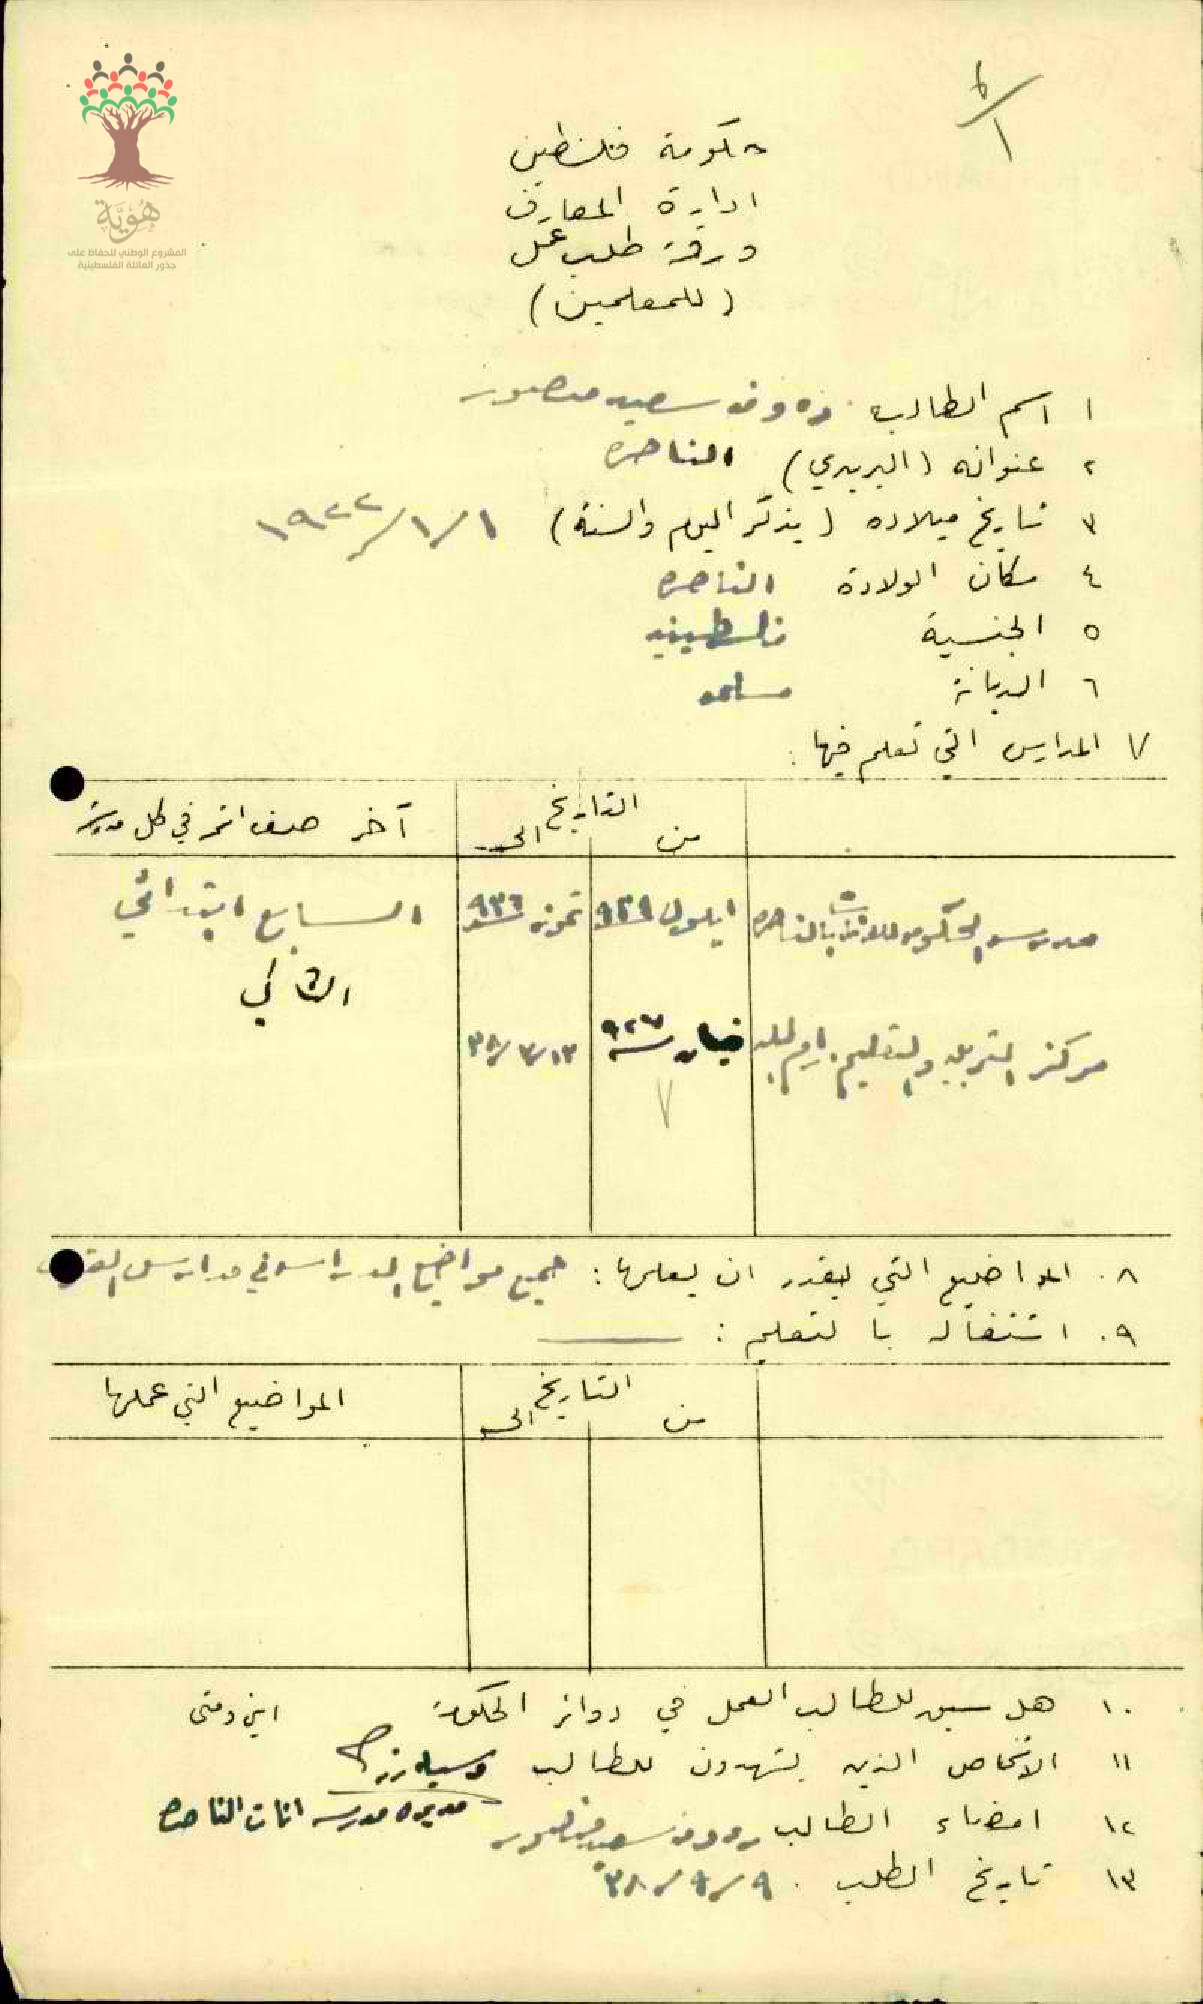 ٦/١
هوية
المشروع الوطني للحفاظ على
جذور العائلة الفلسطينية
حكومة فلسطين
ادارة المعارف
ورقة طلب عمل
(للمعلمين)
١ اسم الطالب سعيد منصور
٢ عنوانه (البريدي) الناصره
٣ تاريخ ميلاده (يذكر اليوم والسنة) ١/١/١٩٢٢
٤ مكان الولادة الناصره
٥ الجنسية فلسطينيه
٦ الديانة مسلمه
٧ المدارس التي تعلم فيها :
التاريخ
من الى آخر صف اتمه في كل مدرسة
مدرسة الحكومه للاناث بالناصره ايلول ٩٢٩ تموز ٩٣٦ السابع ابتدائي
الثاني
مركز التربيه والتعليم برام الله ٩٢٧ ١٣/٧/٣٨
٨. المواضيع التي يقدر ان يعلمها : جميع مواضيع الدراسه في مدارس
٩. اشتغاله بالتعليم :
التاريخ
من الى المواضيع التي عملها
١٠. هل سبق للطالب العمل في دوائر الحكومة اين ومتى
١١ الاشخاص الذين يشهدون للطالب
مديره مدرسه اناث الناصره
١٢ امضاء الطالب سعيد منصور
١٣ تاريخ الطلب. ٩/٩/٣٨